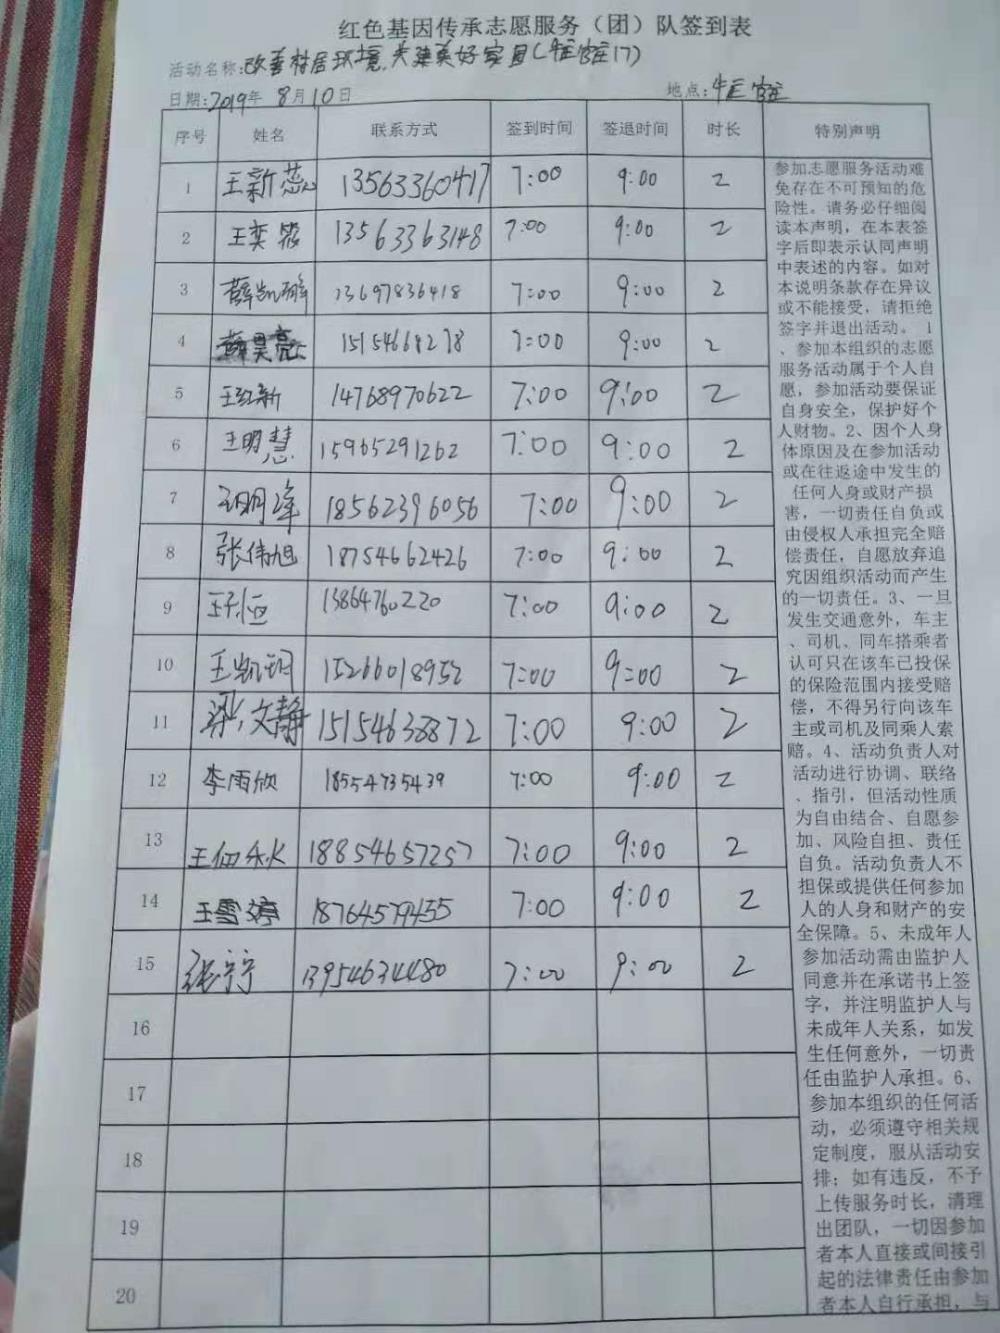 红色基因传承志愿服务（团）队签到表
活动名称:改善村居环境,共建美好家园(牛庄官庄17)
日期:2019年 8月10日 地点:
序号 姓名 联系方式 签到时间 签退时间 时长 特别声明
1 王新蕊 13563360417 7:00 9:00 2
2 王奕 13563363148 7:00 9:00 2
3 薛凯 13697836418 7:00 9:00 2
4 薛昊亮 15154668278 7:00 9:00 2
5 王红新 14768970622 7:00 9:00 2
6 王明慧 15965291262 7:00 9:00 2
7 王明峰 18562396056 7:00 9:00 2
8 张伟旭 18754662426 7:00 9:00 2
9 王子恒 13864760220 7:00 9:00 2
10 王凯玥 15266018952 7:00 9:00 2
11 梁文静 15154638872 7:00 9:00 2
12 李雨欣 18554735439 7:00 9:00 2
13 王佃永 18854657257 7:00 9:00 2
14 王雪婷 18764579455 7:00 9:00 2
15 张宁宁 13954634480 7:00 9:00 2
16
17
18
19
20
参加志愿服务活动难
免存在不可预知的危
险性。请务必仔细阅
读本声明，在本表签
字后即表示认同声明
中表述的内容。如对
本说明条款存在异议
或不能接受，请拒绝
签字并退出活动。 1
、参加本组织的志愿
服务活动属于个人自
愿，参加活动要保证
自身安全，保护好个
人财物。2、因个人身
体原因及在参加活动
或在往返途中发生的
任何人身或财产损
害，一切责任自负或
由侵权人承担完全赔
偿责任，自愿放弃追
究因组织活动而产生
的一切责任。3、一旦
发生交通意外，车主
、司机、同车搭乘者
认可只在该车已投保
的保险范围内接受赔
偿，不得另行向该车
主或司机及同乘人索
赔。4、活动负责人对
活动进行协调、联络
、指引，但活动性质
为自由结合、自愿参
加、风险自担、责任
自负。活动负责人不
担保或提供任何参加
人的人身和财产的安
全保障。5、未成年人
参加活动需由监护人
同意并在承诺书上签
字，并注明监护人与
未成年人关系，如发
生任何意外，一切责
任由监护人承担。6、
参加本组织的任何活
动，必须遵守相关规
定制度，服从活动安
排；如有违反，不予
上传服务时长，清理
出团队，一切因参加
者本人直接或间接引
起的法律责任由参加
者本人自行承担，与